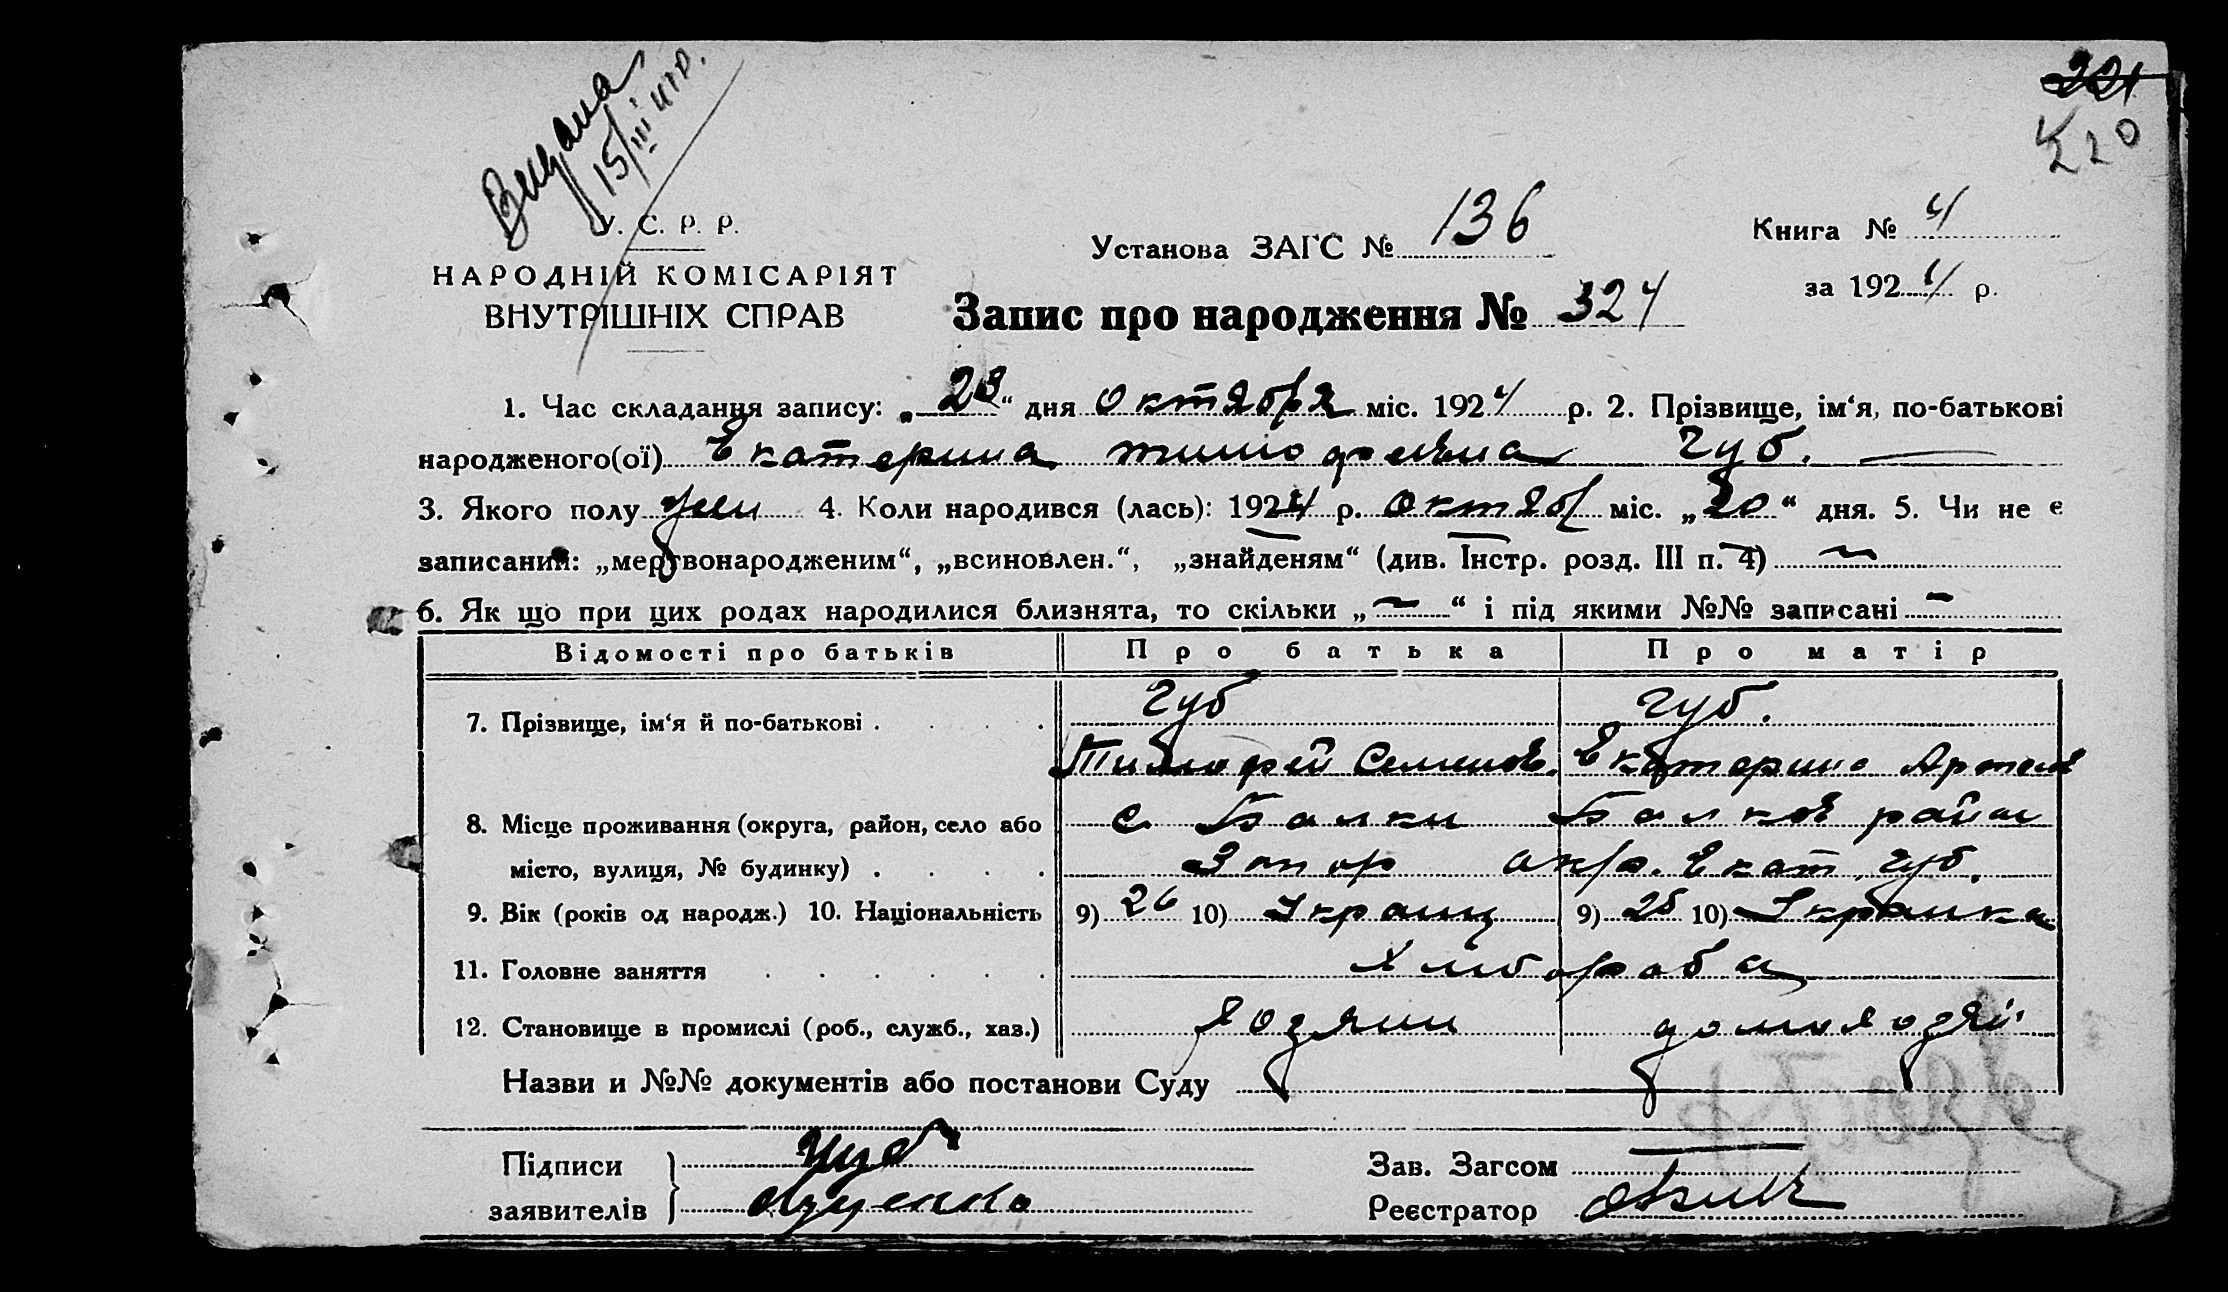 Видана
15/III 47 р.
221
220
У. С. Р. Р.
НАРОДНІЙ КОМІСАРІЯТ
ВНУТРІШНІХ СПРАВ
Установа ЗАГС № 136
Книга № 4
за 1924 р.
Запис про народження № 324
1. Час складання запису: „23“ дня октября міс. 1924 р. 2. Прізвище, ім‘я, по-батькові
народженого(ої) Екатерина Тимофеевна Губ.
3. Якого полу жен 4. Коли народився (лась): 1924 р. октяб міс. „20“ дня. 5. Чи не є
записаний: „мертвонародженим“, „всиновлен.“, „знайденям“ (див. Інстр. розд. III п. 4)
6. Як що при цих родах народилися близнята, то скільки „—“ і під якими №№ записані —
Відомості про батьків Про батька Про матір
7. Прізвище, ім‘я й по-батькові . Губ Губ.
Тимофей Семенов. Екатерина Артем
8. Місце проживання (округа, район, село або с. Балки Балков район
місто, вулиця, № будинку) . Запор окр. Екат. губ.
9. Вік (років од народж.) 10. Національність 9) 26 10) Украин 9) 25 10) Украинка
11. Головне заняття хлібороба
12. Становище в промислі (роб., служб., хаз.) хозяин домохозяй
Назви и №№ документів або постанови Суду
Підписи
заявителів
Зав. Загсом
Реєстратор